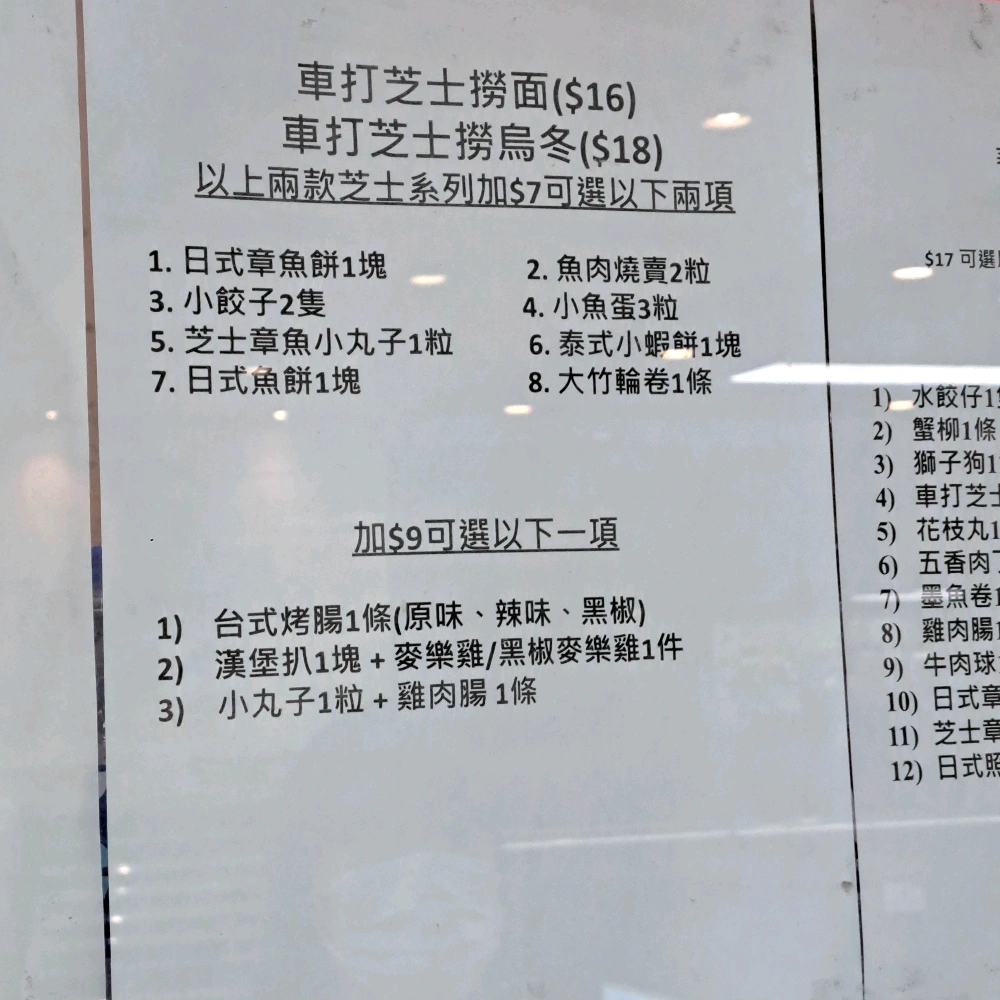 車打芝士撈面($16)
車打芝士撈烏冬($18)
以上兩款芝士系列加$7可選以下兩項
1. 日式章魚餅1塊
2. 魚肉燒賣2粒
3. 小餃子2隻
4. 小魚蛋3粒
5. 芝士章魚小丸子1粒
6. 泰式小蝦餅1塊
7. 日式魚餅1塊
8. 大竹輪卷1條
加$9可選以下一項
1) 台式烤腸1條(原味、辣味、黑椒)
2) 漢堡扒1塊 + 麥樂雞/黑椒麥樂雞1件
3) 小丸子1粒 + 雞肉腸 1條
$17 可選
1) 水餃仔1
2) 蟹柳1條
3) 獅子狗1
4) 車打芝士
5) 花枝丸1
6) 五香肉
7) 墨魚卷1
8) 雞肉腸1
9) 牛肉球
10) 日式章
11) 芝士章
12) 日式照